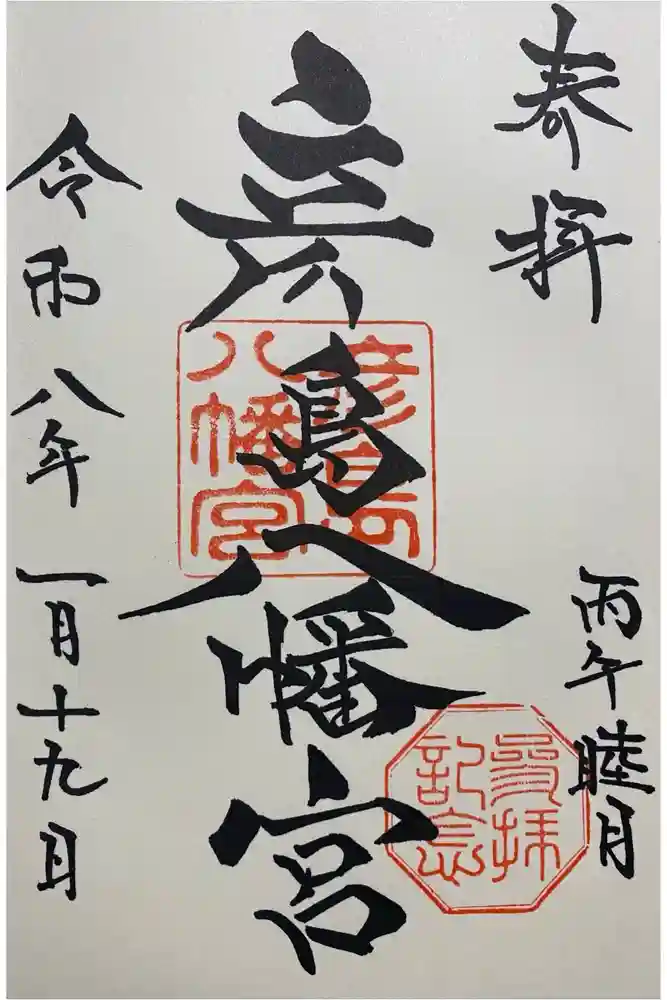 奉拝
丙午睦月
彦島八幡宮
令和八年一月十九日
彦島
八幡宮
參拝
記念